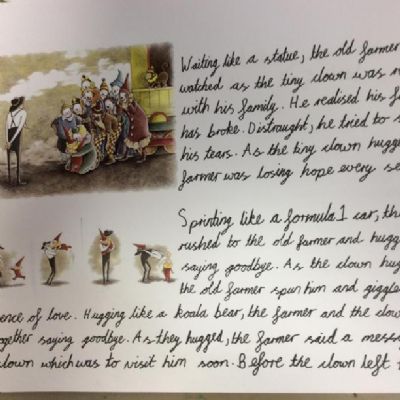 Waiting like a statue, the old farmer
watched as the tiny clown was
with his family. He realised his
has broke. Distraught, he tried to
his tears. As the tiny clown
farmer was losing hope every
Sprinting like a formula 1 car,
rushed to the old farmer and
saying goodbye. As the clown
the old farmer spun him and
of love. Hugging like a koala bear, the farmer and the
saying goodbye. As they hugged, the farmer said a
clown which was to visit him soon. Before the clown left